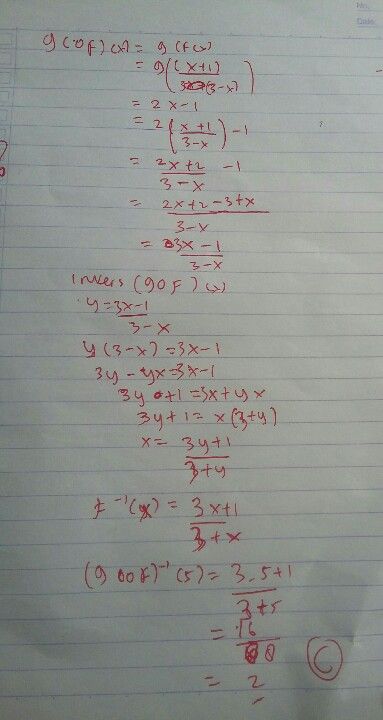 No.
Date
g(of)(x) = g(f(x)
= g((x+1)/(3-x))
= 2x-1
= 2(x+1/3-x)-1
= 2x+2/3-x -1
= 2x+2-3+x/3-x
= 3x-1/3-x
invers (gof)(x)
y=3x-1/3-x
y(3-x)=3x-1
3y-yx=3x-1
3y+1=3x+yx
3y+1=x(3+y)
x=3y+1/3+y
f⁻¹(x)=3x+1/3+x
(gof)⁻¹(5)=3.5+1/3+5
=16/8
=2
C